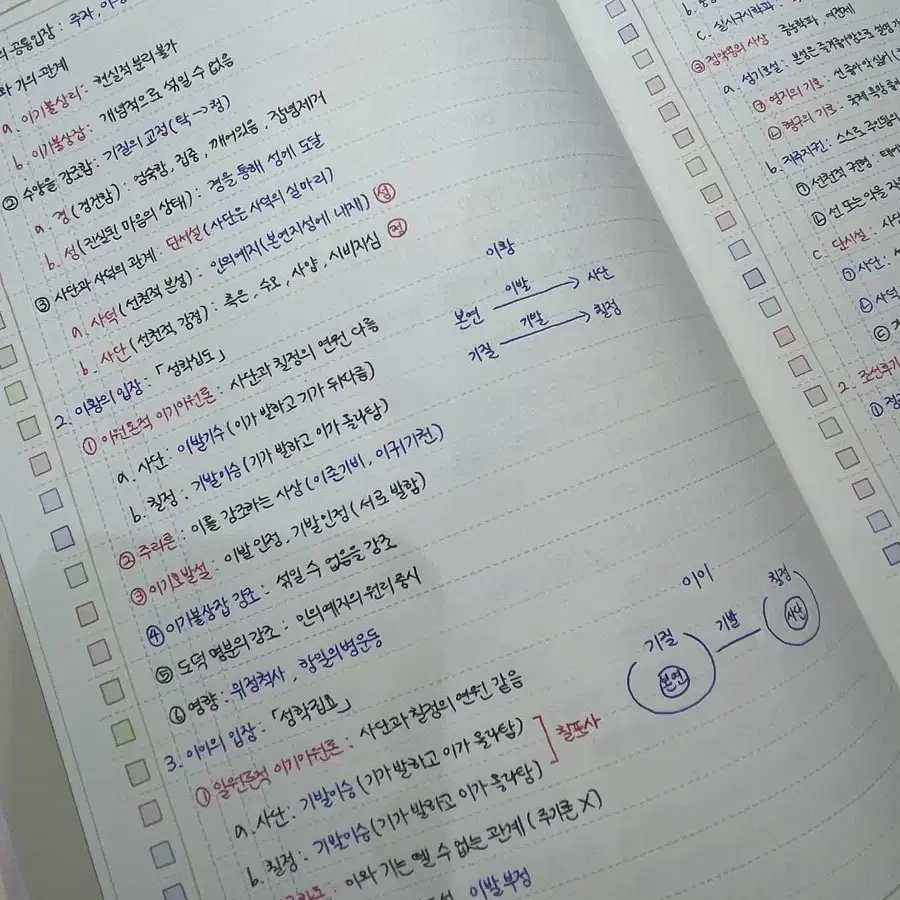 의 공통입장 : 주자,
와 기의 관계
a. 이기불상리 : 현실적 분리 불가
b. 이기불상잡 : 개념적으로 섞일 수 없음
② 수양을 강조함 : 기질의 교정(탁→청)
a. 경(경건함) : 엄숙함, 집중, 깨어있음, 잡념제거
b. 성(진실된 마음의 상태) : 경을 통해 성에 도달
③ 사단과 사덕의 관계 단서설(사단은 사덕의 실마리)
a. 사덕(선천적 본성) : 인의예지(본연지성에 내재) 성
b. 사단(선천적 감정) : 측은, 수오, 사양, 시비지심 정
2. 이황의 입장 : 「성학십도」
① 이원론적 이기이원론 : 사단과 칠정의 연원 다름
a. 사단 : 이발기수(이가 발하고 기가 뒤따름)
b. 칠정 : 기발이승(기가 발하고 이가 올라탐)
② 주리론 : 이를 강조하는 사상(이존기비, 이귀기천)
③ 이기호발설 : 이발 인정, 기발 인정(서로 발함)
④ 이기불상잡 강조 : 섞일 수 없음을 강조
⑤ 도덕 명분의 강조 : 인의예지의 원리 중시
⑥ 영향 : 위정척사, 항일의병운동
3. 이이의 입장 : 「성학집요」
① 일원론적 이기이원론 : 사단과 칠정의 연원 같음
a. 사단 : 기발이승(기가 발하고 이가 올라탐)
b. 칠정 : 기발이승(기가 발하고 이가 올라탐)
칠포사
이와 기는 뗄 수 없는 관계(주기론 X)
이발 부정
이황
본연 이발 → 사단
기질 기발 → 칠정
이이
기질 본연 기발 칠정 사단
c. 실사구시학파 :
③ 정약용의 사상
a. 성기호설 : 본성은
㉠ 영지의 기호 :
㉡ 형구의 기호 :
b. 자주지권 : 스스로
㉠ 선천적 권형 :
㉡ 선 또는 악을
c. 단시설 : 사단
㉠ 사단 :
㉡ 사덕
2. 조선후기